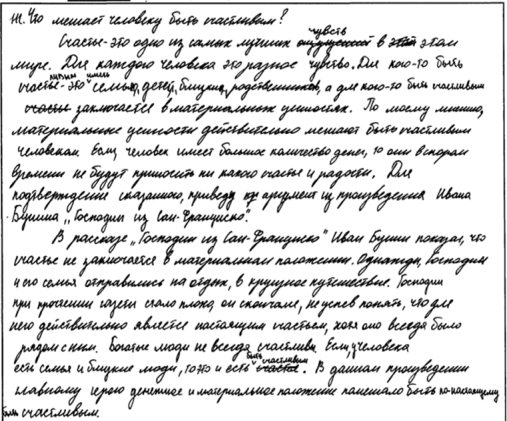 Ж. Что мешает человеку быть счастливым?
чувств
Счастье-это одно из самых лучших ощущений в этом этом
мире. Для каждого человека это разное чувство. Для кого-то быть
счастье-это семья, детей, близких, родственников, а для кого-то быть счастливым
счастье заключается в материальных ценностях. По моему мнению,
материальные ценности действительно мешают быть счастливым
человекам. Если, человек имеет большое количество денег, то они в скором
времени не будут приносить ни какого счастья и радости. Для
подтверждения сказанного, приведу аргумент из произведения Ивана
Бунина „Господин из Сан-Франциско".
В рассказе „Господин из Сан-Франциско" Иван Бунин показал, что
счастье не заключается в материальном положении. Однажды, Господин
и его семья отправились на отдых, в круизное путешествие. Господин
при прочтении газеты стало плохо, он скончался, не успев понять, что для
него действительно является настоящим счастьем, хотя оно всегда было
рядом с ним. Богатые люди не всегда счастливы. Если, у человека
быть счастливым
есть семья и близкие люди, то это и есть счастье. В данном произведении
главному герою денежное и материальное положение помешало быть по-настоящему
быть счастливым.